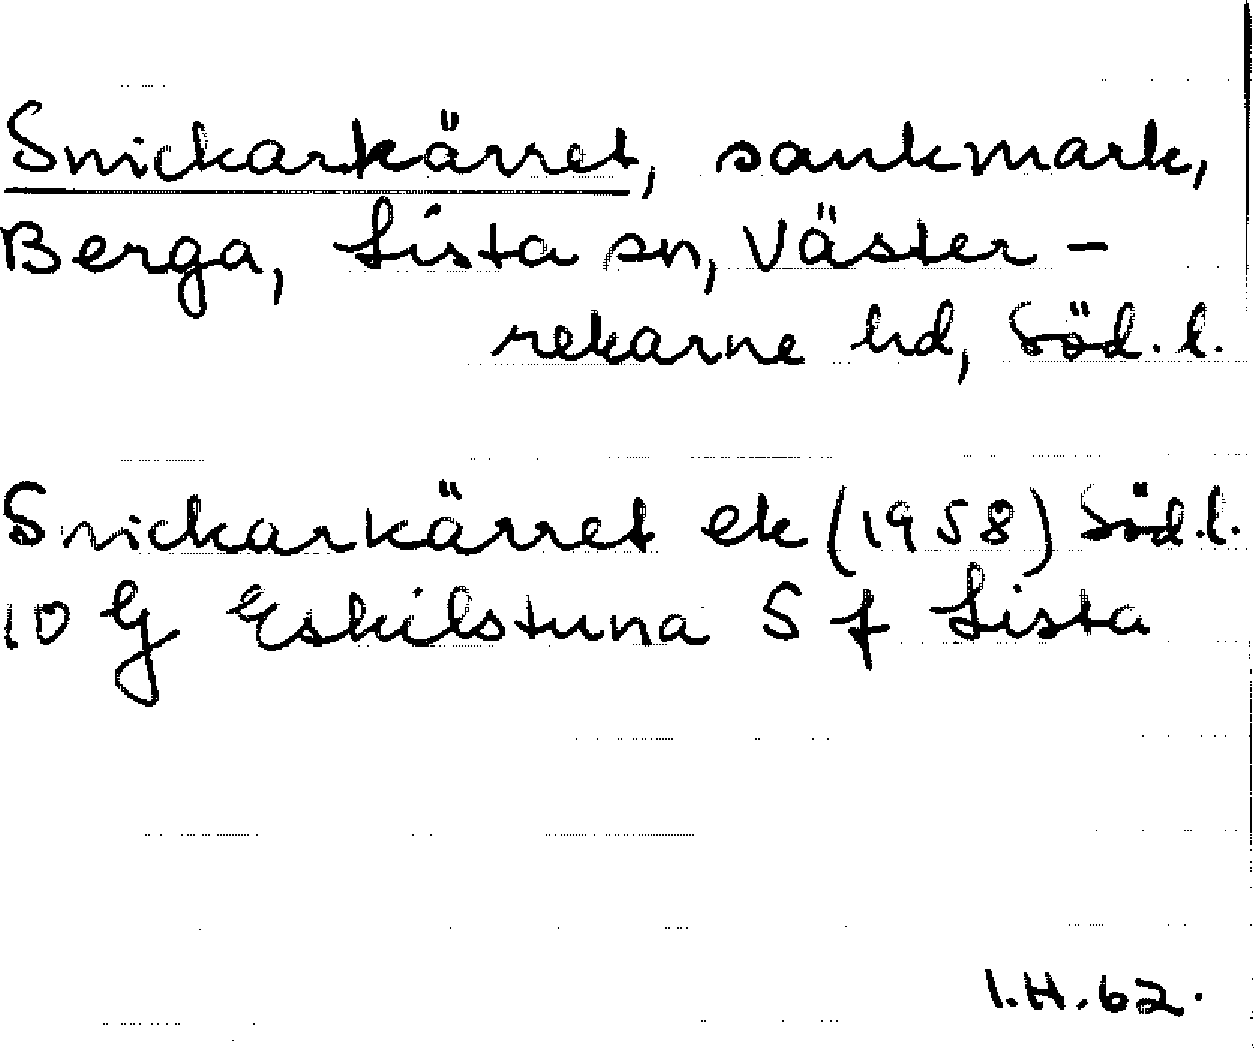 Snickarkärret, sankmark,
Berga, Lista sn, Väster-
rekarne hd, Söd. l.
Snickarkärret ek (1958) Söd. l.
10 G Eskilstuna S f Lista
I.H.62.